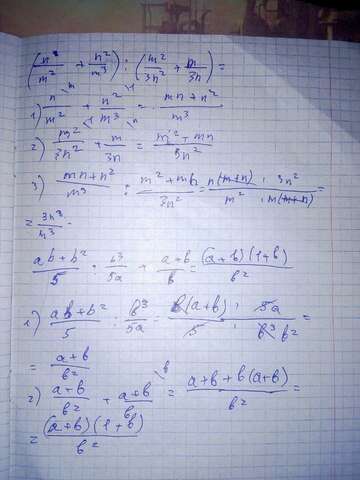 (n³/m² + n²/m³) : (m²/3n² + m/3n) =
1) n/m² + n²/m³ = (mn+n²)/m³
2) m²/3n² + m/3n = (m²+mn)/3n²
3) (mn+n²)/m³ : (m²+mn)/3n² = n(m+n) · 3n² / m³ · m(m+n) =
= 3n³/m³ .
(ab+b²)/5 : b³/5a + (a+b)/b = (a+b)(1+b)/b²
1) (ab+b²)/5 : b³/5a = b(a+b) · 5a / 5 · b³ b² =
= (a+b)/b²
2) (a+b)/b² + (a+b)/b = (a+b+b(a+b))/b² =
= (a+b)(1+b)/b²